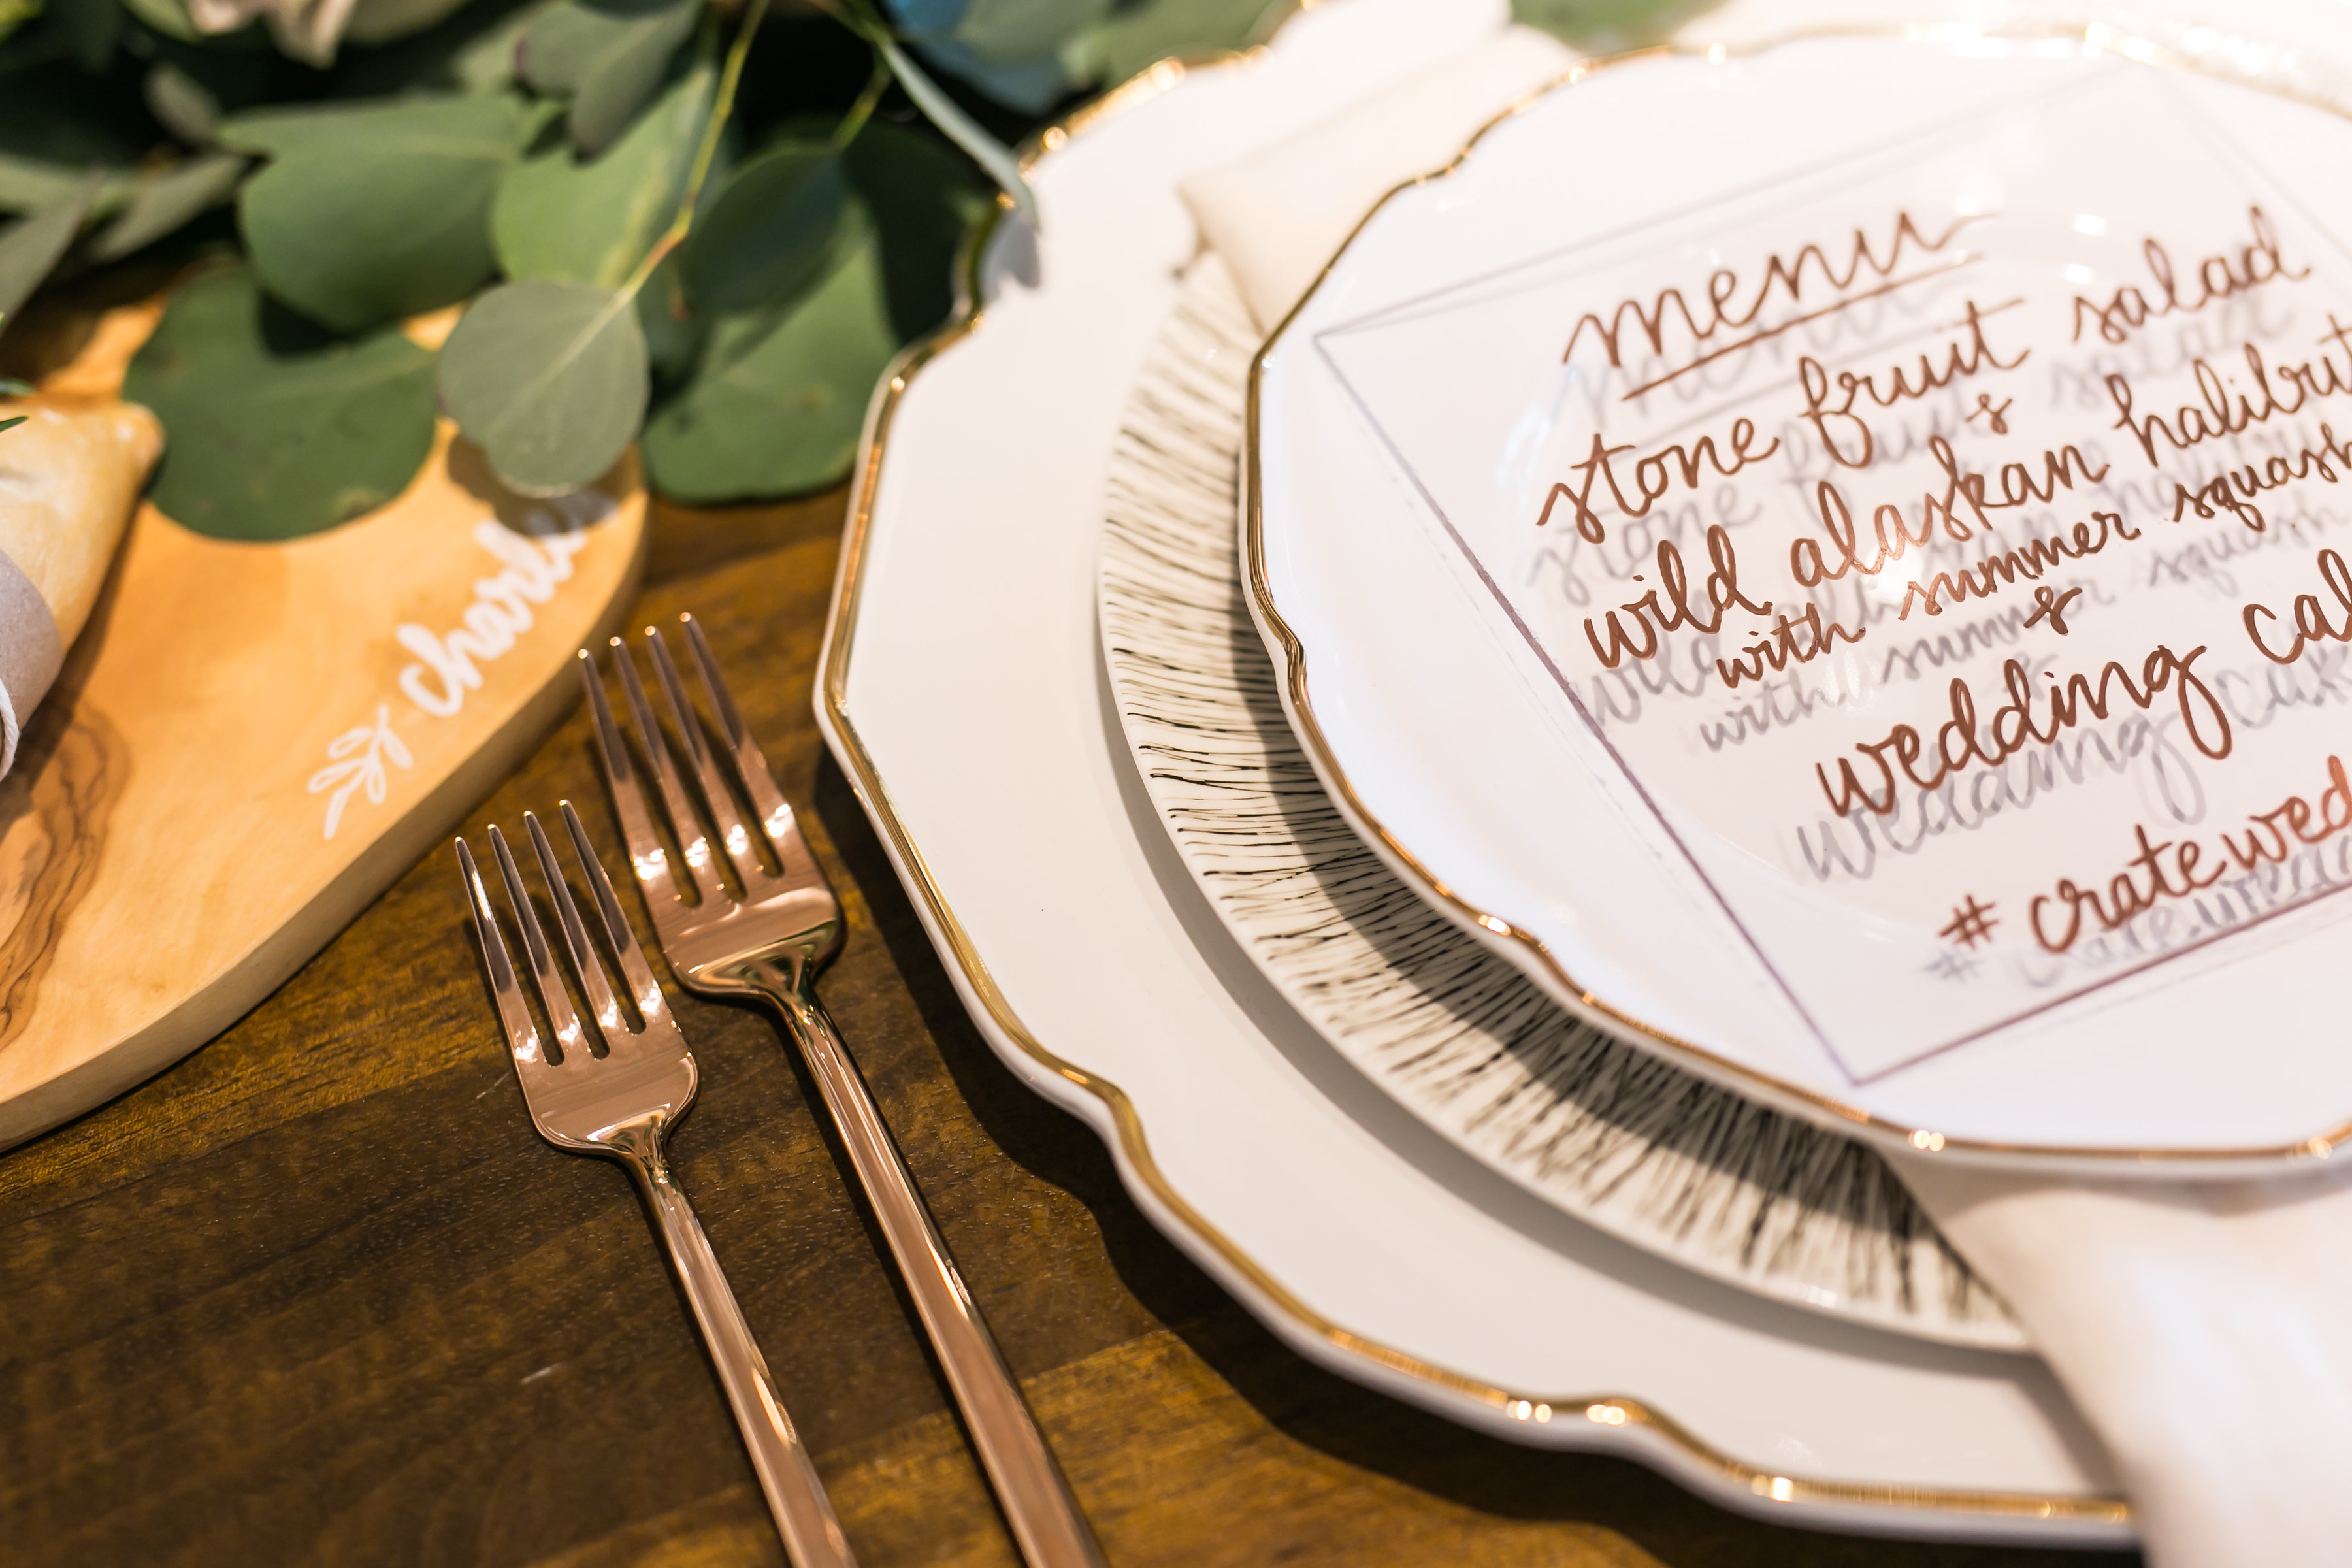 menu
stone fruit salad
&
wild alaskan halibut
with summer squash
&
wedding cak
# cratewed
charli